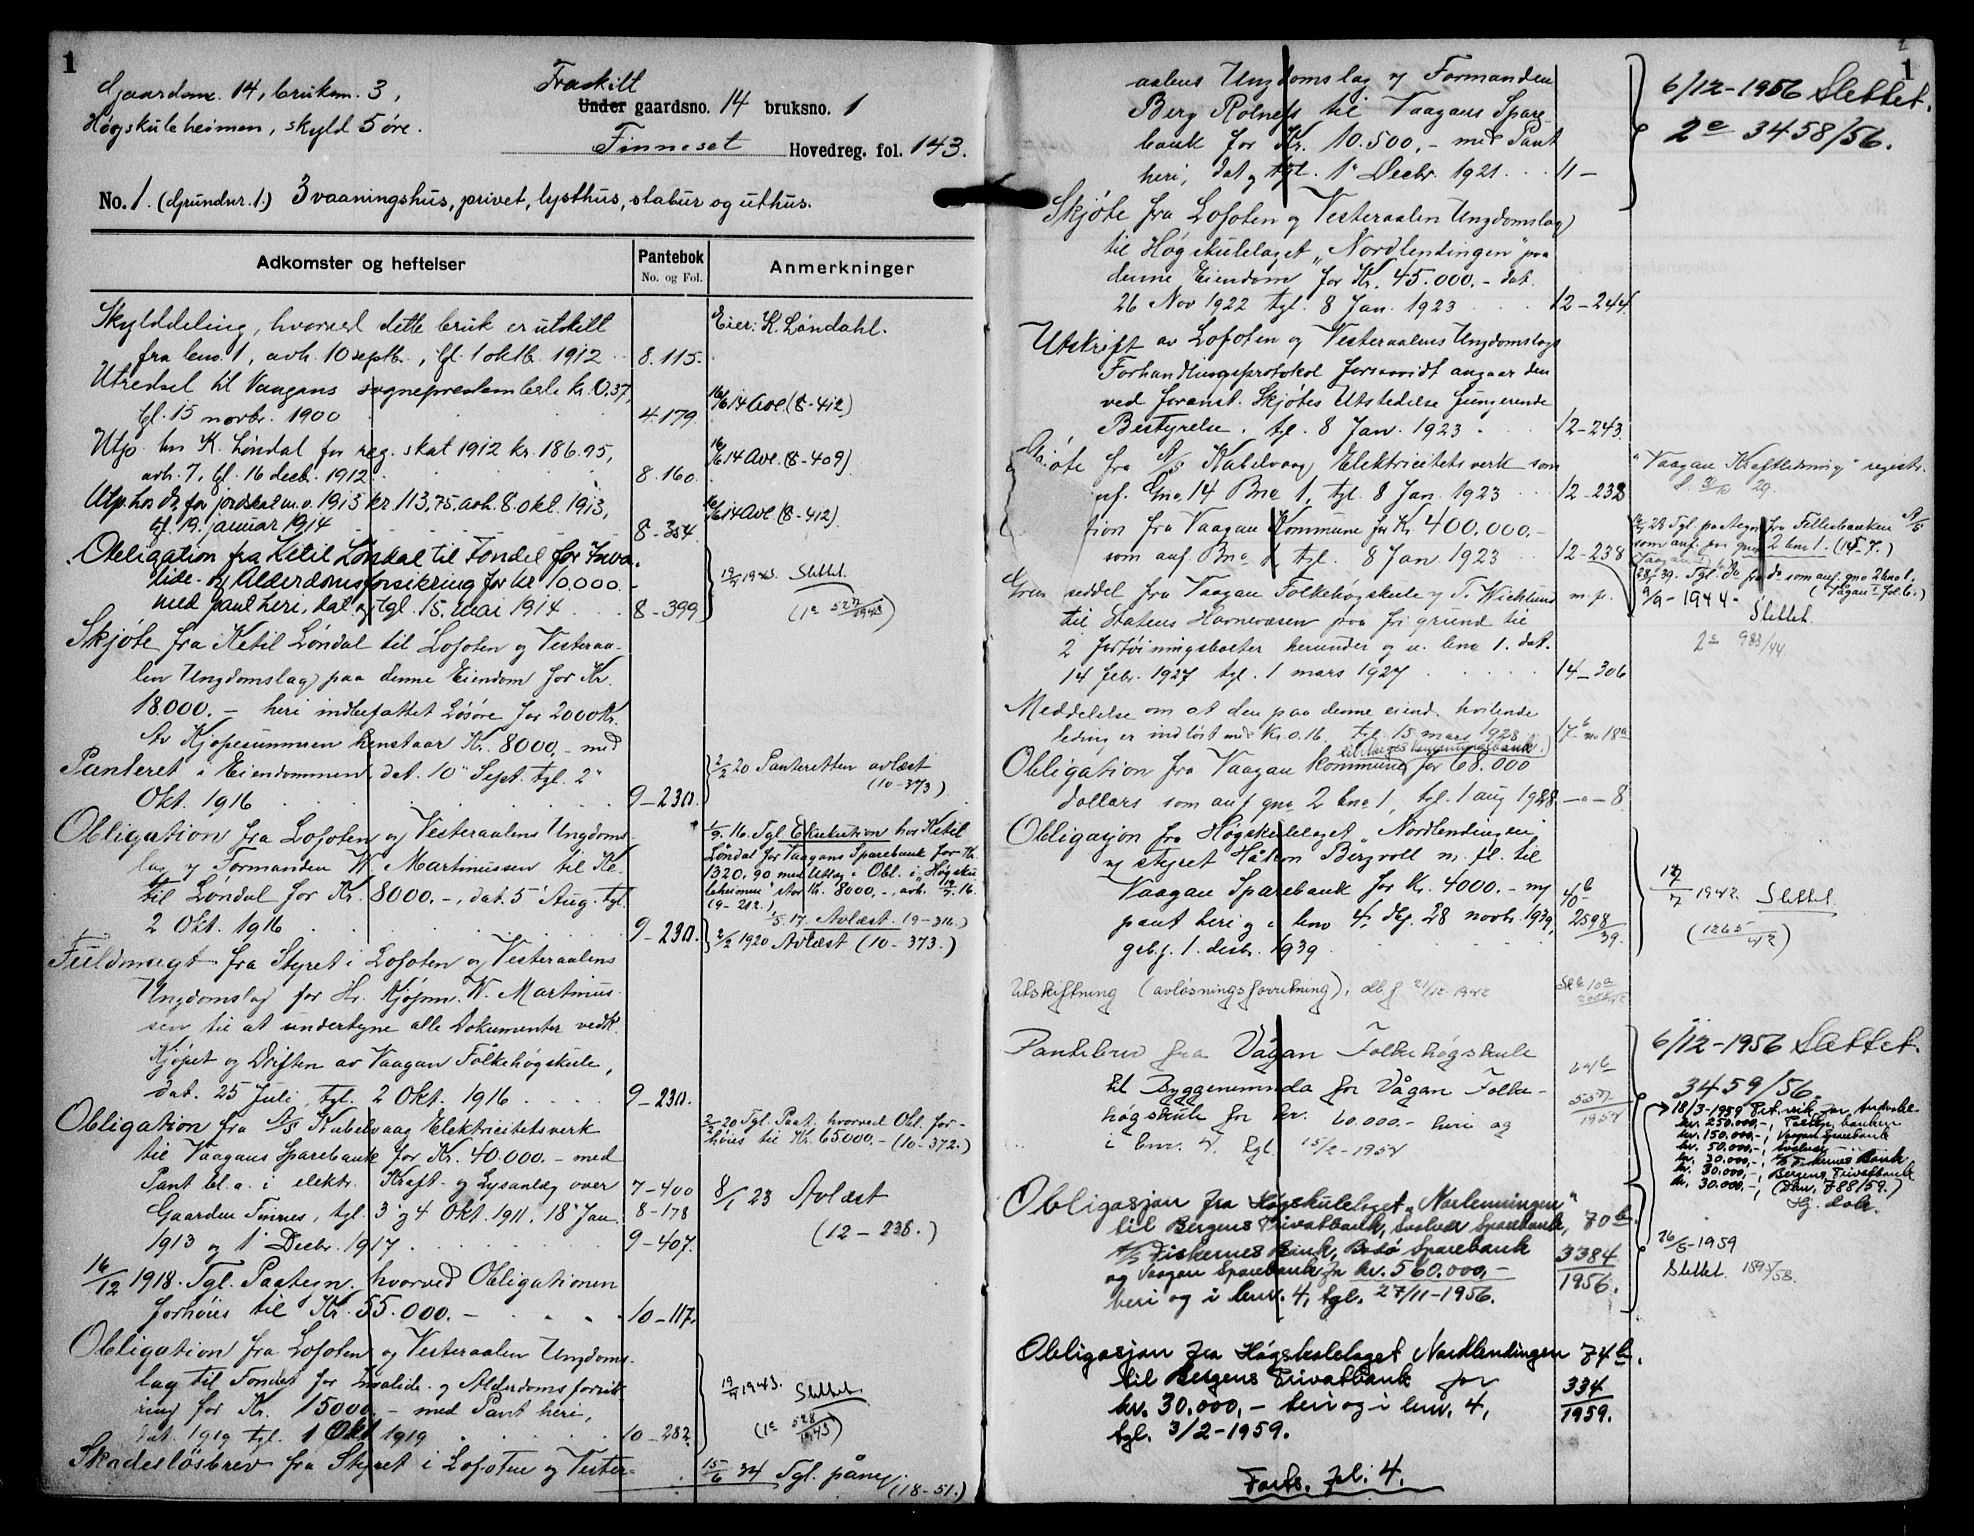 1
Gaardsnr. 14, bruksnr. 3,
Høgskuleheimen, skyld 5 øre.
Fraskilt
Under gaardsno. 14 bruksno. 1
Finneset Hovedreg. fol. 143.
No. 1. (Grundnr. 1.) 3 vaaningshus, privet, lysthus, stabur og uthus.
Adkomster og heftelser
Pantebok
No. og Fol.
Anmerkninger
Skylddeling, hvorved dette bruk er utskilt
fra bno. 1, avh. 10 septb., tgl. 1 oktb. 1912 8.115.
Eier: K. Løndahl.
Utredsel til Vaagans sogneprestembete kr. 0,37,
tgl. 15 novbr. 1900 4.179.
16/6 14 Avl. (8-412)
Utp. hos K. Løndal for reg. skat 1912 kr. 186.95,
avh. 7, tgl. 16 decb. 1912. 8.160.
16/6 14 Avl. (8-409)
Utp. hos Ds. for jordskat m. v. 1913 kr. 113,75, avh. 8. okt. 1913,
tgl. 19. januar 1914 8-354
16/6 14 Avl. (8-412).
Obligation fra Ketil Løndal til Fondet for Inva-
lide- og Alderdomsforsikring for kr. 10.000.-
med pant heri, dat. og tgl. 15. mai 1914 8-399
1943. Slettet.
(1e 527/1943)
Skjøte fra Ketil Løndal til Lofoten og Vesteraa-
len Ungdomslag paa denne Eiendom for Kr.
18.000.- heri indbefattet Løsøre for 2000 Kr.
Av Kjøpesummen henstaar Kr. 8000.- med
Panteret i Eiendommen, dat. 10' Sept. tgl. 2'
Okt. 1916 9-230.
2/2 20 Panteretten avlæst
(10-373)
Obligation fra Lofoten og Vesteraalens Ungdoms-
lag v/ Formanden W. Martinussen til Ke-
til Løndal for Kr. 8000.-, dat. 5' Aug. tgl.
2 Okt. 1916 9-230.
1/9. 16. Tgl. Exekution hos Ketil
Løndal for Vaagans Sparebank for Kr.
1320,90 med Utlæg i Obl. i "Høgsku-
leheimen" stor Kr. 8000.-, avh. 16.
(9-212.)
17. Avlæst. (9-316.)
2/2 1920 Avlæst (10-373.)
Fuldmagt fra Styret i Lofoten og Vesteraalens
Ungdomslag for Hr. Kjøpm. W. Martinus-
sen til at undertegne alle Dokumenter vedk.
Kjøpet og Driften av Vaagan Folkehøgskule,
dat. 25 Juli, tgl. 2 Okt. 1916 9-230.
Obligation fra A/S Kabelvaag Elektricitetsverk
til Vaagans Sparebank for Kr. 40.000.- med
Pant bl. a. i elektr. Kraft- og Lysanlæg over 7-400
Gaarden Finnes, tgl. 3' og 4 Okt. 1911, 18' Jan. 8-178
1913 og 1' Decbr. 1917. 9-407.
2/2 20 Tgl. Paat. hvorved Obl. for-
høies til Kr. 65000.- (10-372.)
8/1 23 Avlæst
(12-238.)
16/12 1918. Tgl. Paategn. hvorved Obligationen
forhøies til Kr. 55.000.- 10-117.
Obligation fra Lofoten og Vesteraalen Ungdoms-
lag til Fondet for Invalide- og Alderdomsforsik-
ring for Kr. 15000.- med Pant heri,
dat. 1919 tgl. 1 Okt. 1919 10-282.
1943. Slettet
(1e 528/1943)
Skadesløsbrev fra Styret i Lofoten og Vester-
15/6 34 Tgl. påny (18-51.)
1
aalens Ungdomslag v/ Formanden
Berg Rolness til Vaagans Spare-
bank for Kr. 10.500.- med Pant
heri, dat. og tgl. 1' Decbr. 1921. 11-
6/12-1956 Slettet.
2e 3458/56.
Skjøte fra Lofoten og Vesteraalen Ungdomslag
til Høgskulelaget "Nordlendingen" paa
denne Eiendom for Kr. 45.000.- dat.
26 Nov 1922 tgl. 8 Jan. 1923 12-244
Utskrift av Lofoten og Vesteraalens Ungdomslags
Forhandlingsprotokol forsaavidt angaar den
ved foranst. Skjøtes Utstedelse fungerende
Bestyrelse. tgl. 8 Jan. 1923. 12-243
Skjøte fra A/S Kabelvaag Elektricitetsverk som
anf. Gno. 14 Bno 1, tgl. 8 Jan. 1923 12-238
"Vaagan Kraftledning" registr.
29.
tion fra Vaagan Kommune for Kr 400.000.-
som anf. Bno 1, tgl. 8 Jan 1923 12-238
28 Tgl. paategn. fra Fellesbanken A/S
som anf. paa gno 2 bno 1. (15-7.)
39. Tgl. do fra do som anf. gno 2 bno 1.
(Vågan I fol. 6.)
9/9-1944- Slettet.
2e 983/44
seddel fra Vaagan Folkehøgskule v/ T. Wicklund m. fl.
til Statens Havnevæsen paa fri grund til
2 fortøiningsbolter herunder og u. bno 1. dat.
14 febr. 1927 tgl. 1 mars 1927 14-306
Meddelelse om at den paa denne eiend. hvilende
leding er indløst med Kr. 0.16. Tgl. 15 mars 1928 17b no 18a
til Norges Kommunalbank
Obligation fra Vaagan Kommune for 68.000
dollars som anf gno 2 bno 1, tgl. 1 aug 1928 -"-8
Obligasjon fra Høgskulelaget "Nordlendingen"
v/ styret Håkon Bergvoll m. fl. til
Vaagan Sparebank for Kr. 4000.- m/
pant heri og i bno 4, dg. 28 novbr. 1939,
gebj. 1. desbr. 1939.
40b
2598/39.
1942. Slettet.
(1265/42)
Utskiftning (avløsningsforretning), dbf 21/12-1942
Pantebrev fra Vågan Folkehøgskule
til Byggenemnda for Vågan Folke-
høgskule for kr. 60.000.- heri og
i bnr. 4. tgl. 15/2-1954
6/12-1956 Slettet.
3459/56.
18/3-1959 Pri. vik. for Andvake
kr. 250.000,-, Fellesbanken
kr. 150.000,-, Vågan Sparebank
kr. 50.000,-, Svolvær
kr. 30.000,-, A/S Fiskernes Bank
kr. 30.000,-, Bergens Privatbank
kr. 30.000,-, (Dbnr. 788/59.)
Obligasjon fra Høgskulelaget "Norlenningen"
til Bergens Privatbank, Svolvær Sparebank, 70b.
A/S Fiskernes Bank, Bodø Sparebank 3384/1956.
og Vaagan Sparebank for kr. 560.000,-
heri og i bnr. 4, tgl. 27/11-1956.
26/5-1959
Slettet. 1895/58.
Obligasjon fra Høgskolelaget Nordlendingen 74b.
til Bergens Privatbank for
kr. 30.000,- heri og i bnr. 4, 334/1959.
tgl. 3/2-1959.
Forts. fol. 4.